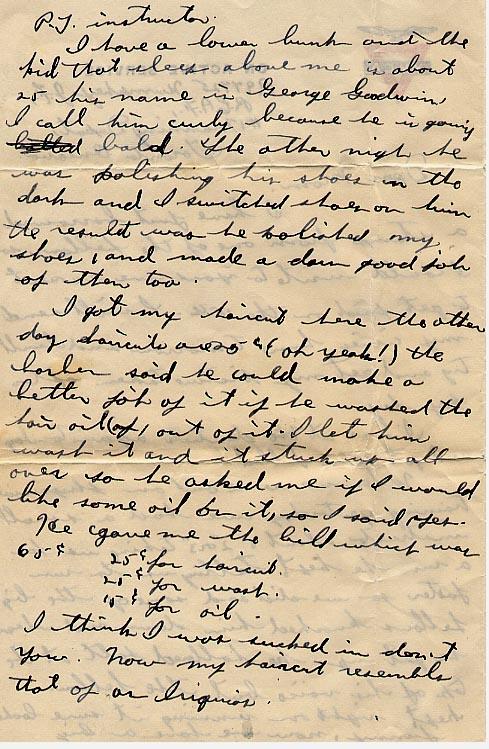 P.T. instructor.
I have a lower bunk and the
kid that sleeps above me is about
25 his name is George Goodwin,
I call him curly because he is going
bald. The other nigh he
was polishing his shoes in the
dark and I switched shoes on him
the result was he polished my
shoes, and made a darn good job
of them too.
I got my haircut here the other
day haircuts are 25¢ (oh yeah!) the
barber said he could make a
better job of it if he washed the
hair oil (of) out of it. I let him
wash it and it stuck up all
over so he asked me if I would
like some oil on it, so I said yes.
He cgave me the bill which was
65¢
25¢ for haircut.
25¢ for wash.
15¢ for oil.
I think I was sucked in don't
you. Now my haircut resembles
that of an Iriquios.